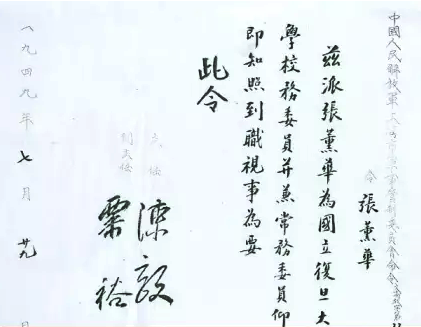 中國人民解放軍上海市軍事管制委員會命令
令 張薰華
茲派張薰華為國立復旦大
學校務委員并兼常務委員仰
即知照到職視事為要
此令
主任
副主任
陳毅
粟裕
一九四九年七月廿九日